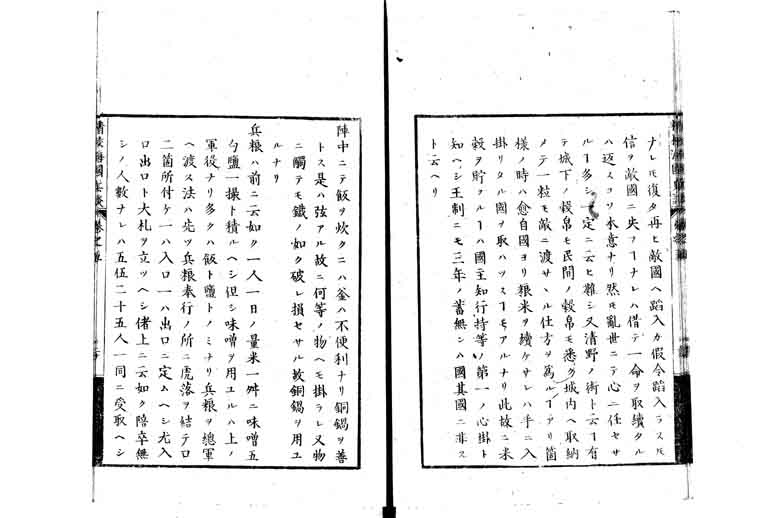 ナレモ復タ再ヒ敵國ヘ蹈入カ假令蹈入ラス𪜈
信ヲ敵國ニ失フヿナレハ借テ一命ヲ取續タル
ハ迈スコソ本意ナリ然モ亂世ニテ心ニ任セサ
ルヿ多シ一定ニ云ヒ難シ又清野ノ術ト云ヿ有
テ城下ノ穀帛モ民間ノ穀帛モ悉ク城内ヘ取納
メテ一粒モ敵ニ渡サヽル仕方ヲ爲ルヿアリ箇
樣ノ時ハ愈自國ヨリ粮米ヲ續ケサレハ手ニ入
掛リタル國ヲ取ハツスヿモアルナリ此故ニ米
穀ヲ貯フルヿハ國主知行持等ノ第一ノ心掛ト
知ヘシ王制ニモ三年ノ蓄無ンハ國其國ニ非ス
ト云ヘリ
陣中ニテ飯ヲ炊クニハ釜ハ不便利ナリ銅鍋ヲ善
トス是ハ弦アル故ニ何等ノ物ヘモ掛ラレ又物
ニ觸テモ鐵ノ如ク破レ損セサル故銅鍋ヲ用ユ
ルナリ
兵粮ハ前ニ云如ク一人一日ノ量米一舛ニ味噌五
勺鹽一撮ト積ルヘシ但シ味噌ヲ用エルハ上ノ
軍役ナリ多クハ飯ト鹽トノミナリ兵粮ヲ總軍
ヘ渡ス法ハ先ツ兵粮奉行ノ所ニ虎落ヲ結テ口
二箇所付ケ一ハ入口一ハ出口ニ定ムヘシ尤入
口出口ト大札ヲ立ツヘシ偖上ニ云如ク陪卒無
シノ人數ナレハ五伍二十五人一同ニ受取ヘシ